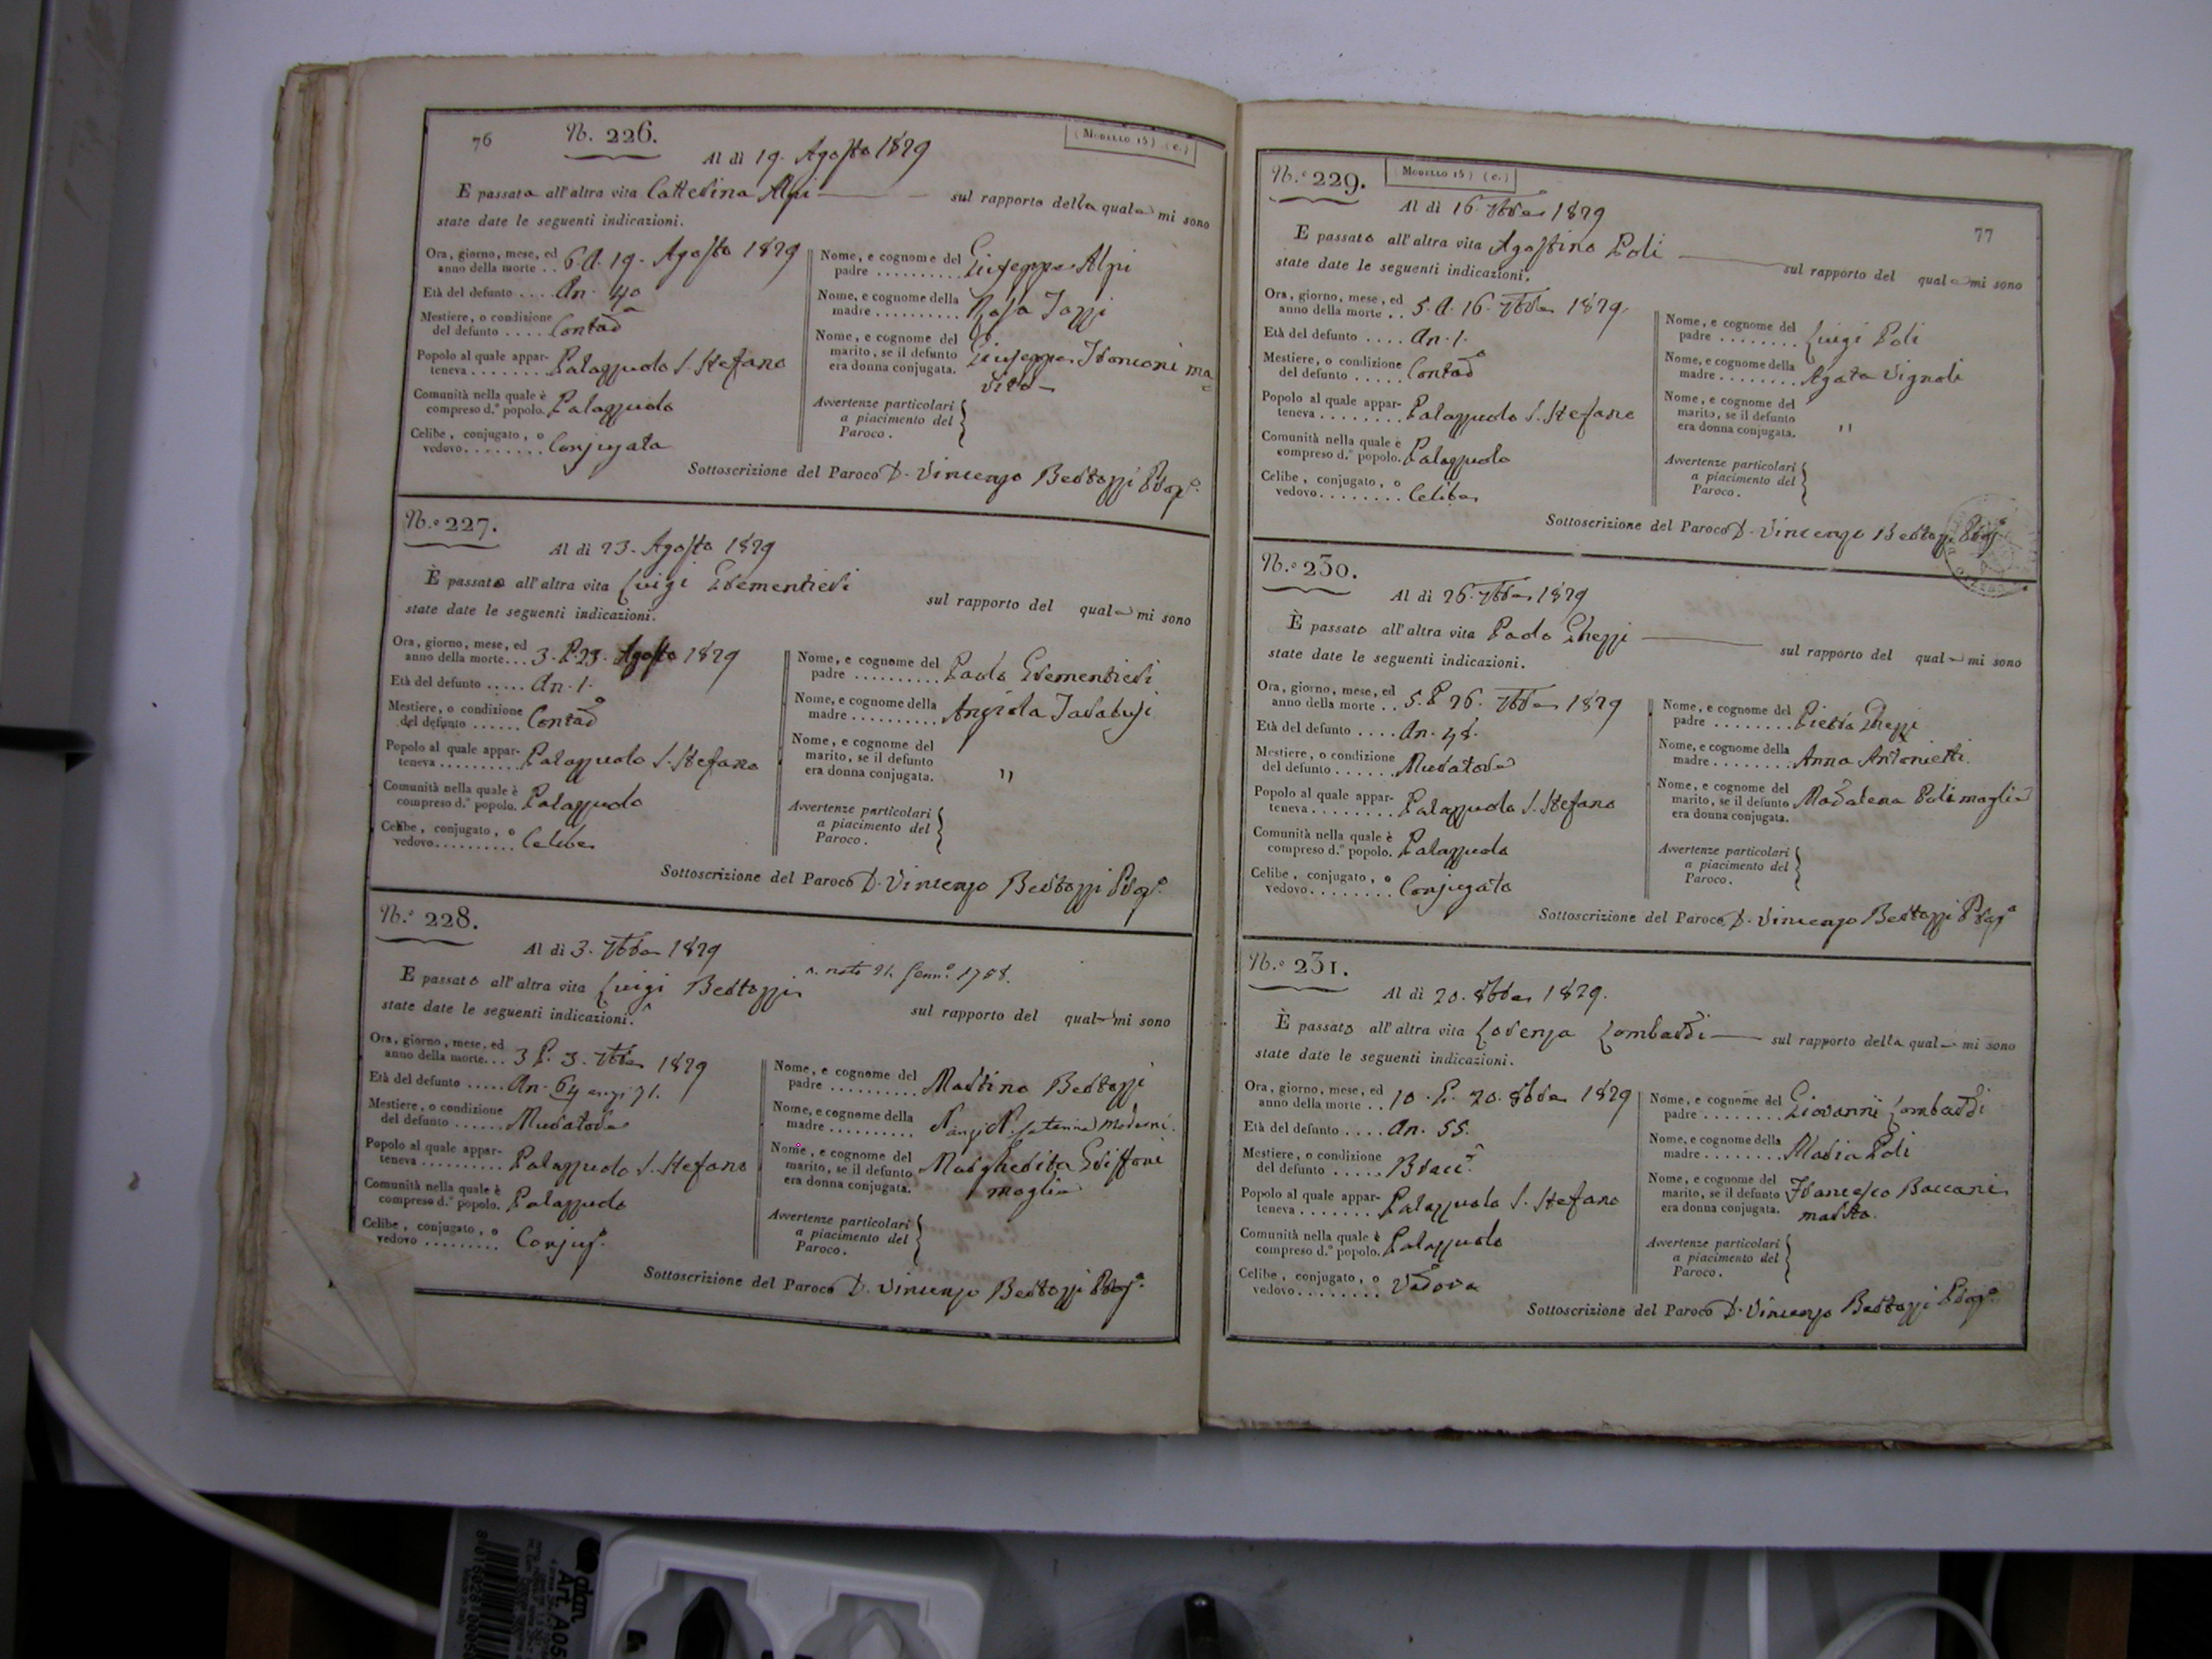 76
N. 226.
(Modello 15) (c.)
Al dì 19. Agosto 1829
È passata all'altra vita Catterina Alpi sul rapporto della quale mi sono
state date le seguenti indicazioni.
Ora, giorno, mese, ed
anno della morte .. 6. A. 19. Agosto 1829
Età del defunto .... An. 40
Mestiere, o condizione
del defunto ..... Contad.a
Popolo al quale appar-
teneva ........ Palazzuolo S. Stefano
Comunità nella quale è
compreso d.° popolo. Palazzuolo
Celibe, conjugato, o
vedovo........ Conjugata
Nome, e cognome del
padre .......... Giuseppe Alpi
Nome, e cognome della
madre .......... Rosa
Nome, e cognome del
marito, se il defunto
era donna conjugata. Giuseppe Franconi ma=
rito
Avvertenze particolari
a piacimento del
Paroco.
Sottoscrizione del Paroco D. Vincenzo Bertozzi Prop.°
N.° 227.
Al dì 23. Agosto 1829
È passato all'altra vita Luigi Grementieri
sul rapporto del quale mi sono
state date le seguenti indicazioni.
Ora, giorno, mese, ed
anno della morte... 3. P. 23. Agosto 1829
Età del defunto ..... An. 1.
Mestiere, o condizione
del defunto ...... Contad.°
Popolo al quale appar-
teneva .......... Palazzuolo S. Stefano
Comunità nella quale è
compreso d.° popolo. Palazzuolo
Celibe, conjugato, o
vedovo.......... Celibe
Nome, e cognome del
padre .......... Paolo Grementieri
Nome, e cognome della
madre .......... Angiola
Nome, e cognome del
marito, se il defunto
era donna conjugata. "
Avvertenze particolari
a piacimento del
Paroco.
Sottoscrizione del Paroco D. Vincenzo Bertozzi Prop.°
N.° 228.
Al dì 3. 7bre 1829
È passato all'altra vita Luigi Bertozzi nato 21. Genn.° 1758.
sul rapporto del quale mi sono
state date le seguenti indicazioni.
Ora, giorno, mese, ed
anno della morte... 3 P. 3. 7bre 1829
Età del defunto ..... An. 64 anzi 71.
Mestiere, o condizione
del defunto ...... Muratore
Popolo al quale appar-
teneva .......... Palazzuolo S. Stefano
Comunità nella quale è
compreso d.° popolo. Palazzuolo
Celibe, conjugato, o
vedovo ......... Conjug.°
Nome, e cognome del
padre .......... Martino Bertozzi
Nome, e cognome della
madre ..........
Nome, e cognome del
marito, se il defunto
era donna conjugata. Margherita Griffoni
moglie
Avvertenze particolari
a piacimento del
Paroco.
Sottoscrizione del Paroco D. Vincenzo Bertozzi Prop.°
N.° 229.
(Modello 15) (c.)
77
Al dì 16. 7bre 1829
È passato all'altra vita Agostino Poli
sul rapporto del quale mi sono
state date le seguenti indicazioni.
Ora, giorno, mese, ed
anno della morte .. 5. A. 16. 7bre 1829.
Età del defunto .... An. 1.
Mestiere, o condizione
del defunto ..... Contad.°
Popolo al quale appar-
teneva ........ Palazzuolo S. Stefano
Comunità nella quale è
compreso d.° popolo. Palazzuolo
Celibe, conjugato, o
vedovo........ Celibe
Nome, e cognome del
padre ........ Luigi Poli
Nome, e cognome della
madre ........ Agata Vignoli
Nome, e cognome del
marito, se il defunto
era donna conjugata. "
Avvertenze particolari
a piacimento del
Paroco.
Sottoscrizione del Paroco D. Vincenzo Bertozzi Prop.°
N.° 230.
Al dì 26. 7bre 1829
È passato all'altra vita Paolo Ghezzi
sul rapporto del quale mi sono
state date le seguenti indicazioni.
Ora, giorno, mese, ed
anno della morte .. 5. P. 26. 7bre 1829
Età del defunto .... An. 48.
Mestiere, o condizione
del defunto ...... Muratore
Popolo al quale appar-
teneva ........ Palazzuolo S. Stefano
Comunità nella quale è
compreso d.° popolo. Palazzuolo
Celibe, conjugato, o
vedovo........ Conjugato
Nome, e cognome del
padre ........ Pietro Ghezzi
Nome, e cognome della
madre ........ Anna Antonietti
Nome, e cognome del
marito, se il defunto
era donna conjugata. Madalena Poli moglie
Avvertenze particolari
a piacimento del
Paroco.
Sottoscrizione del Paroco D. Vincenzo Bertozzi Prop.°
N.° 231.
Al dì 20. 8bre 1829.
È passato all'altra vita Lorenza Lombardi sul rapporto della quale mi sono
state date le seguenti indicazioni.
Ora, giorno, mese, ed
anno della morte .. 10. P. 20. 8bre 1829
Età del defunto .... An. 55.
Mestiere, o condizione
del defunto ..... Bracc.e
Popolo al quale appar-
teneva ....... Palazzuolo S. Stefano
Comunità nella quale è
compreso d.° popolo. Palazzuolo
Celibe, conjugato, o
vedovo........ Vedova
Nome, e cognome del
padre ........ Giovanni Lombardi
Nome, e cognome della
madre ........ Maria Poli
Nome, e cognome del
marito, se il defunto
era donna conjugata. Francesco Baccani
marito.
Avvertenze particolari
a piacimento del
Paroco.
Sottoscrizione del Paroco D. Vincenzo Bertozzi Prop.°
Art. A05